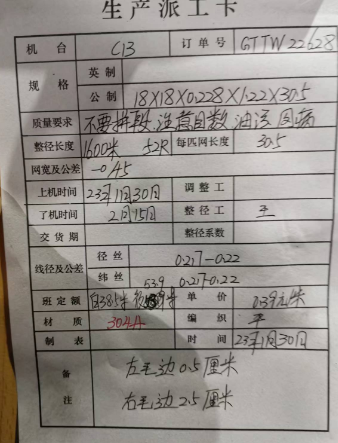 生产派工卡
机台 C13 订单号 GTTW22628
规格 英制
公制 18X18X0.228X1.22X30.5
质量要求 不要拼段.注意目数 油污
整径长度 1600米 52R 每匹网长度 30.5
网宽及公差 -0/45
上机时间 23年1月30日 调整工
了机时间 2月15日 整径工
交货期 整径系数
线径及公差 径丝 0.217-0.22
纬丝 0.217-0.22
班定额 单价 0.39元/米
材质 304A 编织 平
制表 时间 23年1月30日
备注 左毛边0.5厘米
右毛边2.5厘米